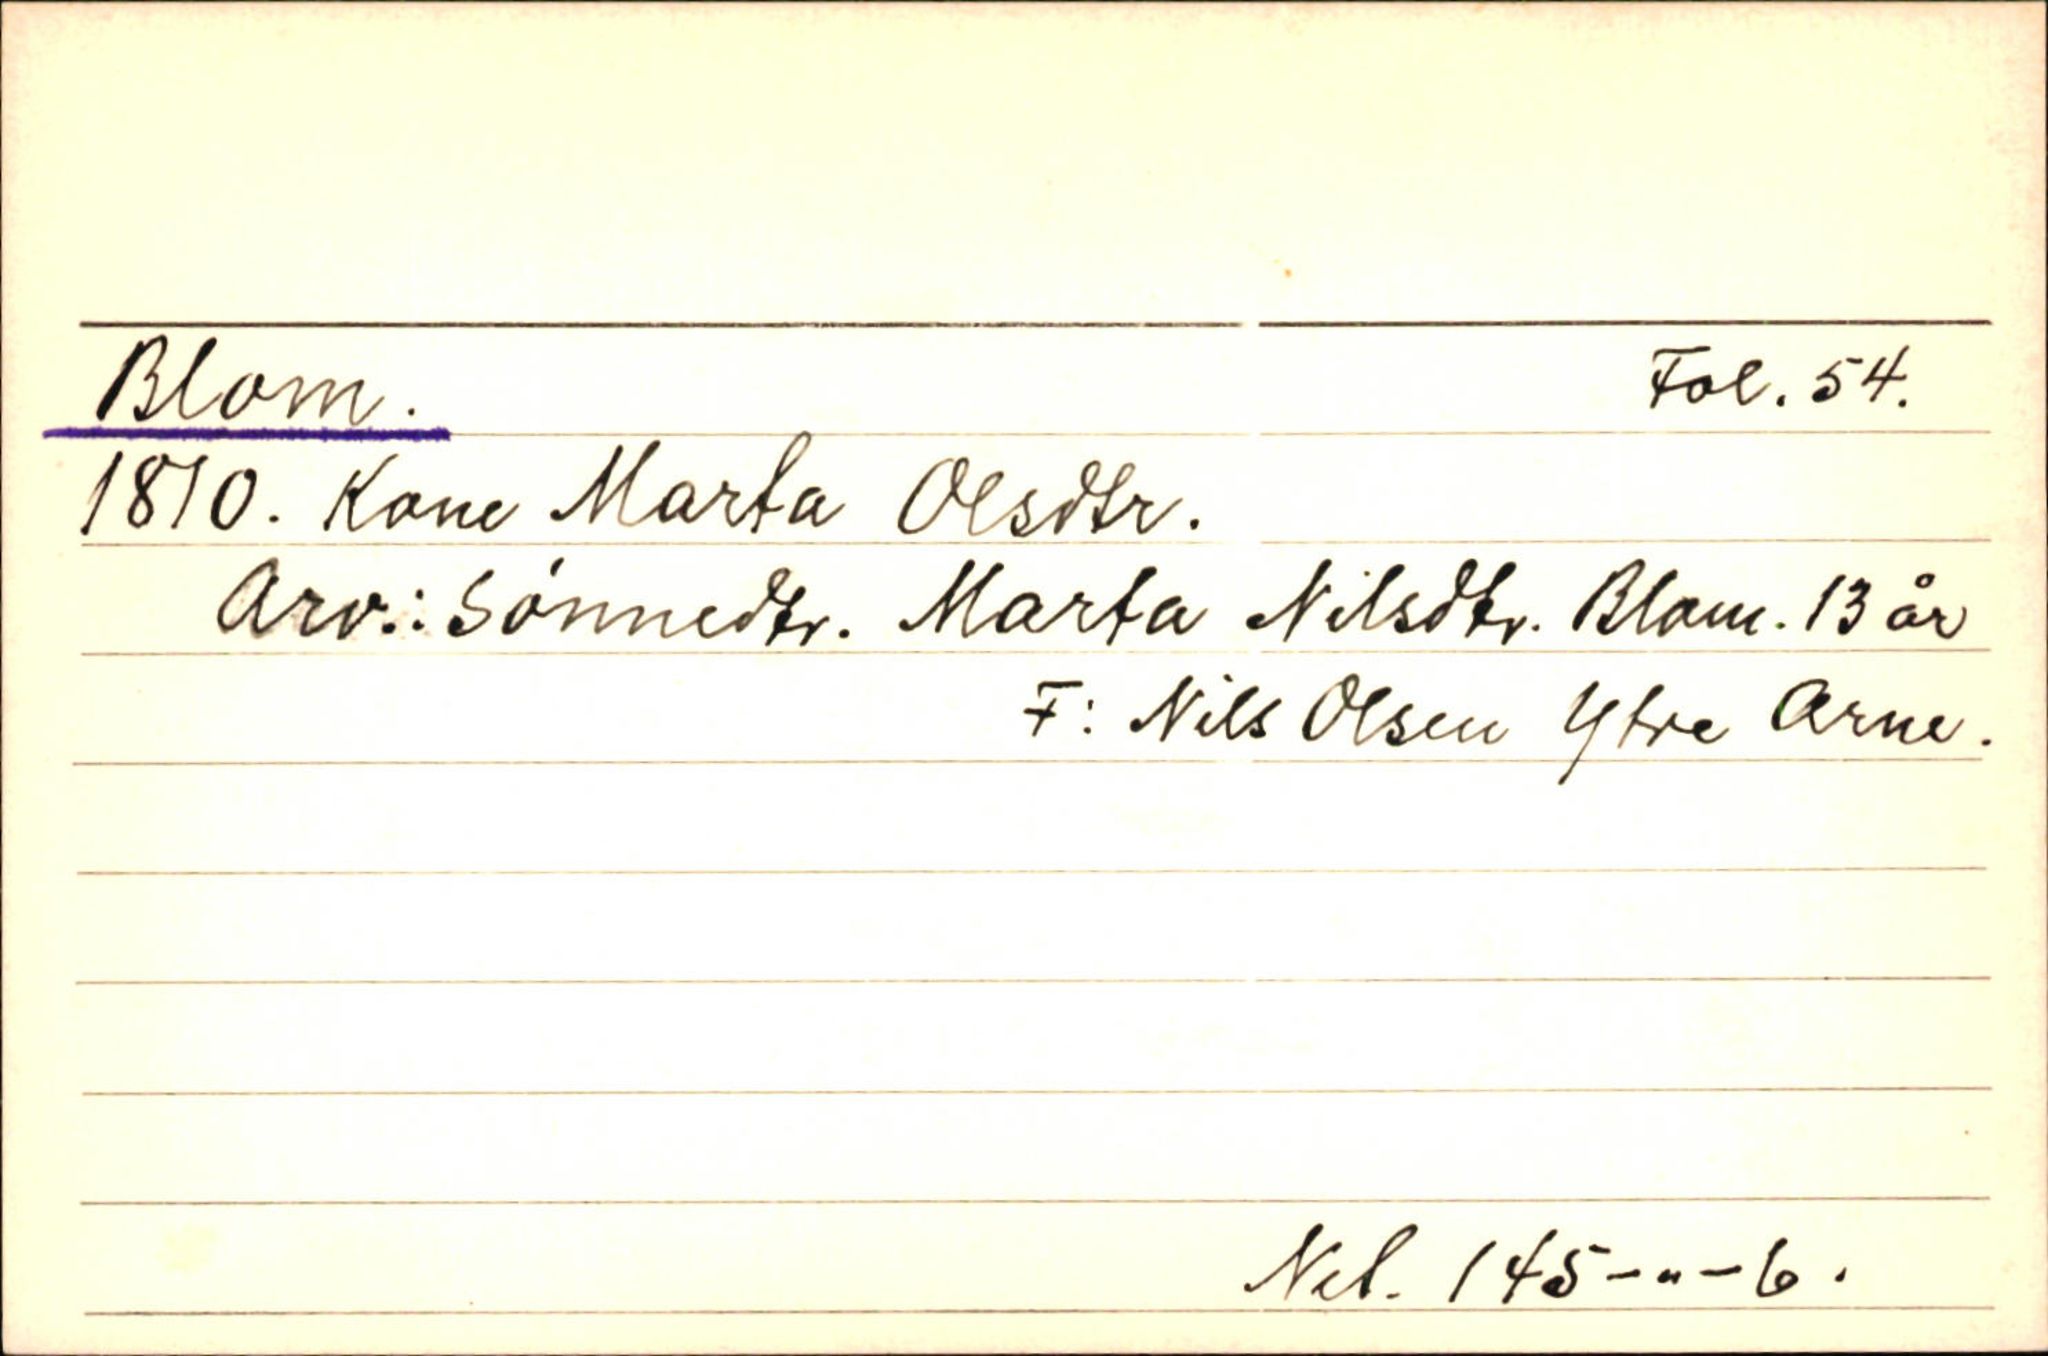 Blom. Fol. 54.
1810. Kone Marta Olsdtr.
Arv.: Sónnedtr. Marta Nilsdtr. Blom. 13 år
F: Nils Olsen Ytre Arne.
Net. 145-"-6.